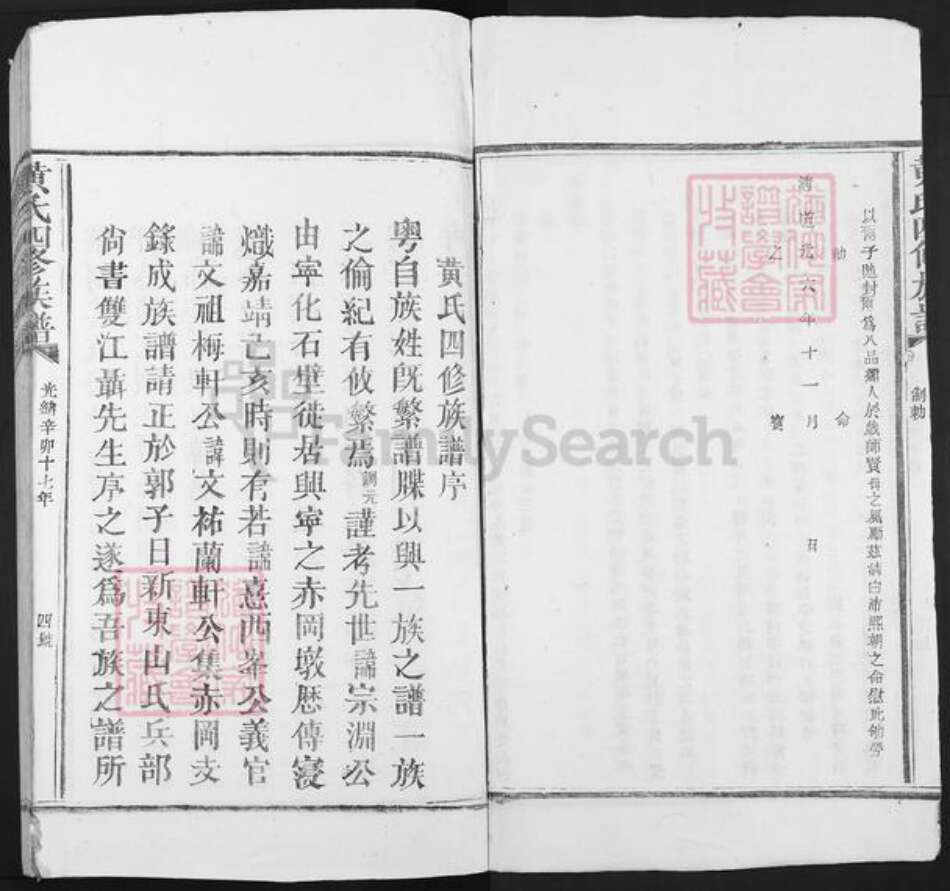 黃氏四修族譜
制勅
以爾子貤封爾為八品孺人於戲師賢母之風勵玆清白沛熙朝之命慰此劬勞
勅命
清道光六年十一月 日
之寶
譜學會
收藏
黃氏四修族譜序
粵自族姓旣繁譜牒以興一族之譜一族
之倫紀有攸繫焉訓元謹考先世諱宗淵公
由寜化石壁徙居興寜之赤岡墩歷傳寖
熾嘉靖己亥時則有若諱憙西峯公義官
諱文祖梅軒公諱文祐蘭軒公集赤岡支
錄成族譜請正於郭子日新東山氏兵部
尙書雙江聶先生序之遂爲吾族之譜所
黃氏四修族譜
光緖辛卯十七年
四鐫
譜學會
收藏
FamilySearch